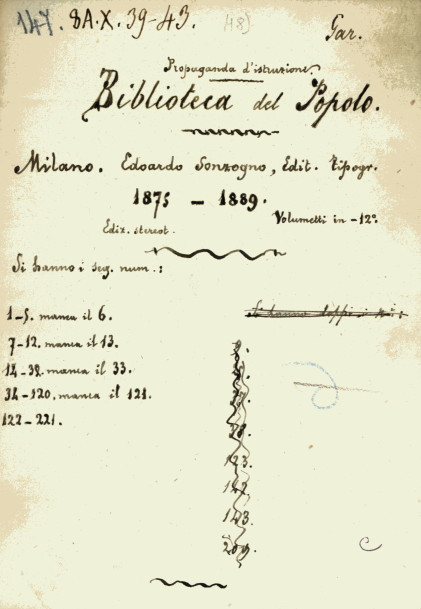 147. 8A.X. 39-43. (48)
Gar.
Propaganda d'istruzione.
Biblioteca del Popolo.
Milano. Edoardo Sonzogno, Edit. tipogr.
1875 – 1889.
Ediz. stereot. Volumetti in -12º
Si hanno i seg. num.:
1-5. manca il 6.
7-12. manca il 13.
14-32. manca il 33.
34-120. manca il 121.
122-221.
Si hanno doppi i n.i:
28.
123.
142.
143.
209.